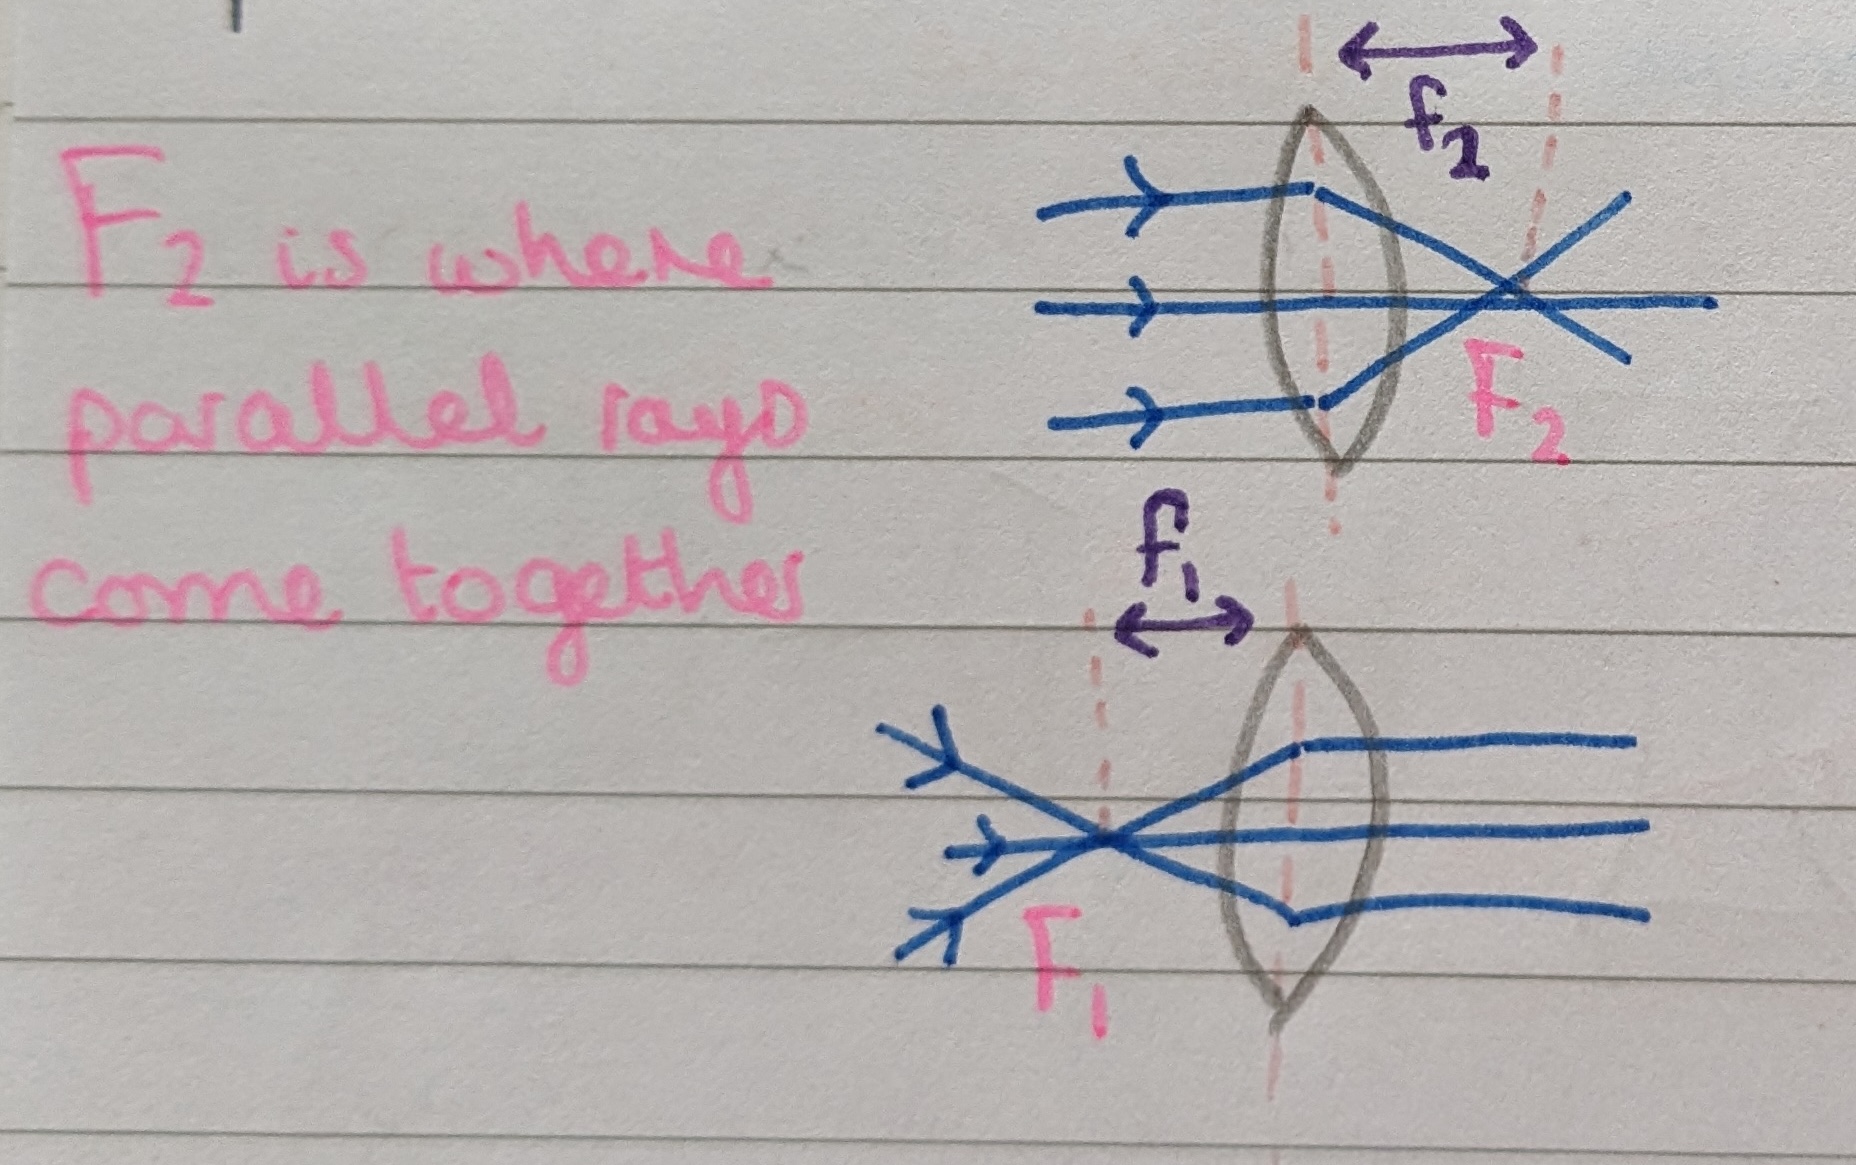 F2 is where
parallel rays
come together
f2
F2
f1
F1